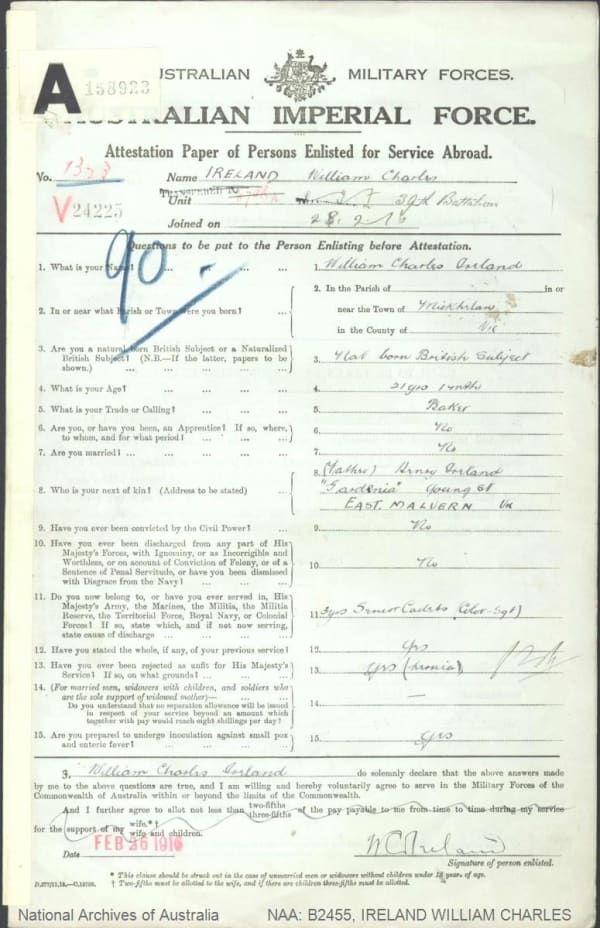 A
158923
AUSTRALIAN MILITARY FORCES.
AUSTRALIAN IMPERIAL FORCE.
Attestation Paper of Persons Enlisted for Service Abroad.
No. 1323 Name IRELAND William Charles
V24225
Unit 39th Battalion
Joined on 28.2.16
90
Questions to be put to the Person Enlisting before Attestation.
1. What is your Name? ... ... ... ... 1. William Charles Ireland
2. In or near what Parish or Town were you born? ... 2. In the Parish of in or
near the Town of
in the County of Vic
3. Are you a natural born British Subject or a Naturalized
British Subject? (N.B.—If the latter, papers to be
shown.) ... ... ... ... ...
3. Nat born British Subject
4. What is your Age? ... ... ... ... 4. 21 yrs 1 mth
5. What is your Trade or Calling? ... ... ... 5. Baker
6. Are you, or have you been, an Apprentice? If so, where,
to whom, and for what period? ... ... ...
6. No
7. Are you married? ... ... ... ... ... 7. No
8. Who is your next of kin? (Address to be stated) ...
8. (Father) Ireland
"Gardenia" Young St
EAST MALVERN Vic
9. Have you ever been convicted by the Civil Power? ... 9. No
10. Have you ever been discharged from any part of His
Majesty's Forces, with Ignominy, or as Incorrigible and
Worthless, or on account of Conviction of Felony, or of a
Sentence of Penal Servitude, or have you been dismissed
with Disgrace from the Navy? ... ... ...
10. No
11. Do you now belong to, or have you ever served in, His
Majesty's Army, the Marines, the Militia, the Militia
Reserve, the Territorial Force, Royal Navy, or Colonial
Forces? If so, state which, and if not now serving,
state cause of discharge ... ... ... ...
11. 3yrs Senior Cadets (Color-Sgt)
12. Have you stated the whole, if any, of your previous service? 12. Yes
13. Have you ever been rejected as unfit for His Majesty's
Service? If so, on what grounds? ... ... ...
13. Yes (hernia)
14. (For married men, widowers with children, and soldiers who
are the sole support of widowed mother)—
Do you understand that no separation allowance will be issued
in respect of your service beyond an amount which
together with pay would reach eight shillings per day?
14. —
15. Are you prepared to undergo inoculation against small pox
and enteric fever? ... ... ... ...
15. Yes
I, William Charles Ireland do solemnly declare that the above answers made
by me to the above questions are true, and I am willing and hereby voluntarily agree to serve in the Military Forces of the
Commonwealth of Australia within or beyond the limits of the Commonwealth.
And I further agree to allot not less than two-fifths three-fifths of the pay payable to me from time to time during my service
for the support of my wife.*† wife and children.
Date FEB 26 1916
W C Ireland
Signature of person enlisted.
* This clause should be struck out in the case of unmarried men or widowers without children under 18 years of age.
† Two-fifths must be allotted to the wife, and if there are children three-fifths must be allotted.
National Archives of Australia NAA: B2455, IRELAND WILLIAM CHARLES